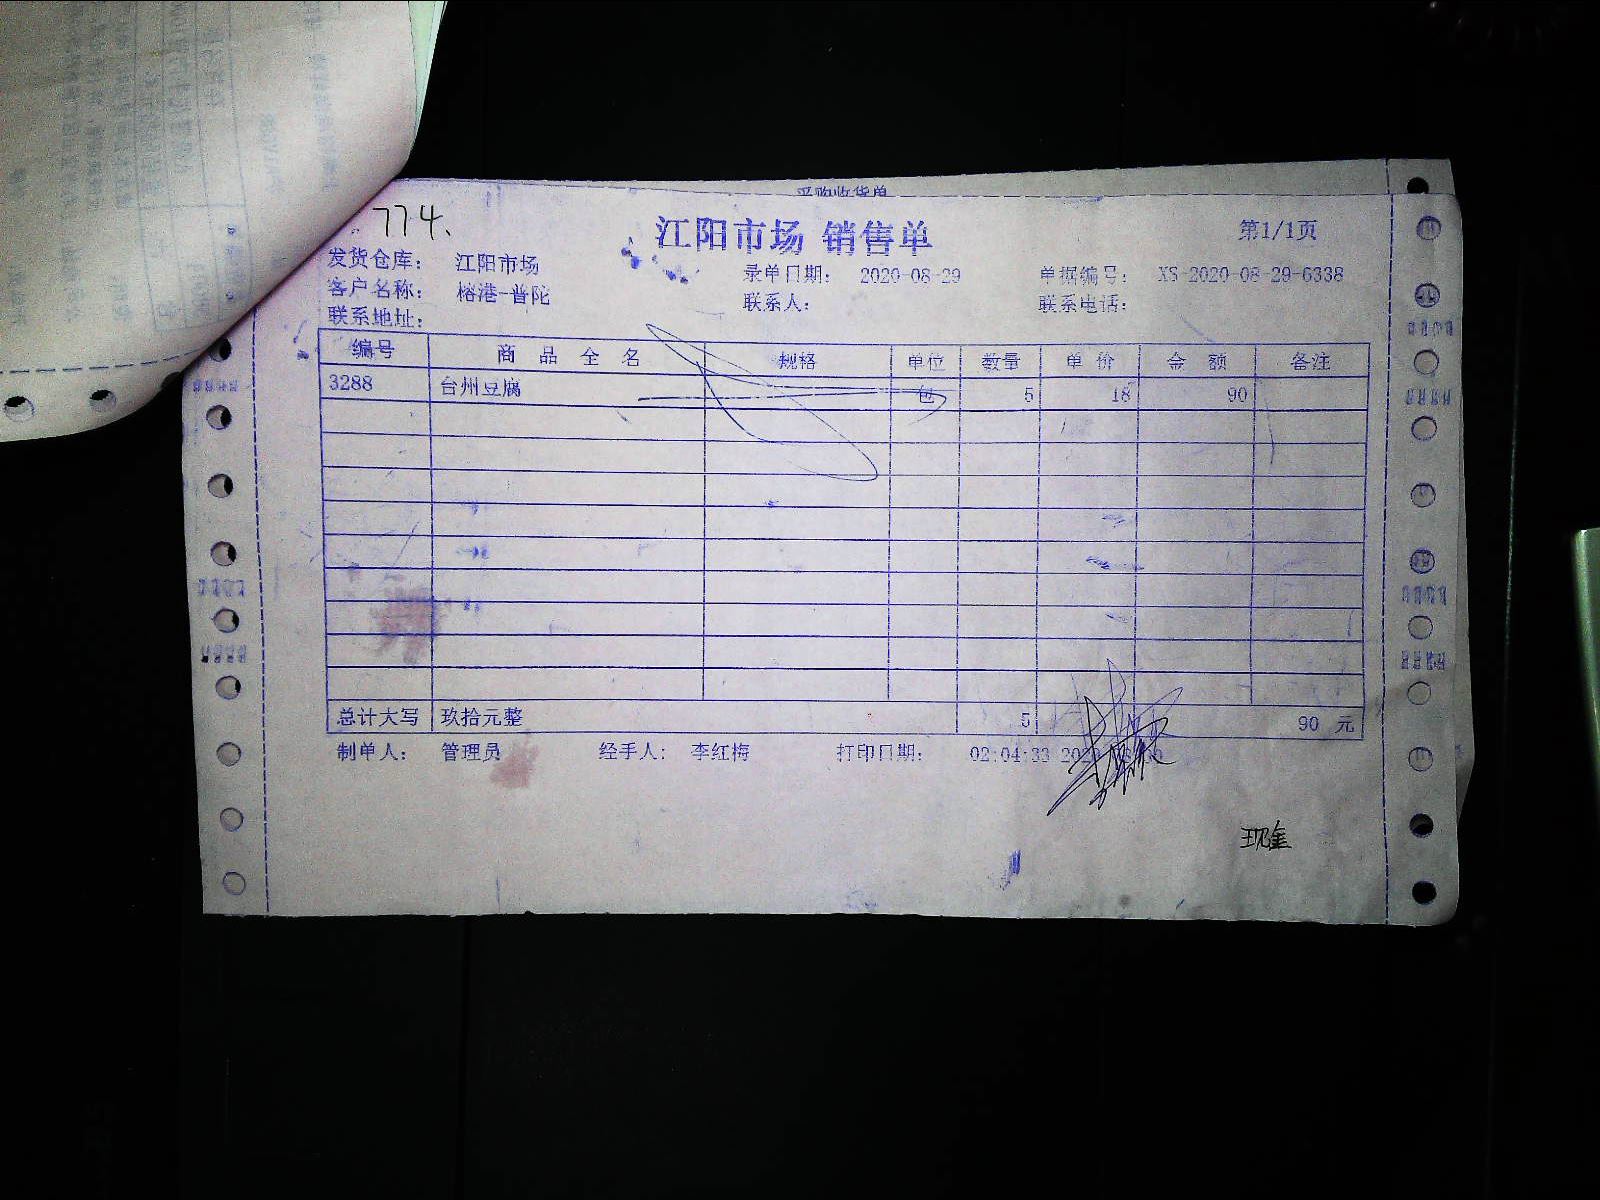 采购收货单
774、
江阳市场 销售单
第1/1页
发货仓库： 江阳市场 录单日期： 2020-08-29 单据编号： XS-2020-08-29-6338
客户名称： 榕港-普陀 联系人： 联系电话：
联系地址：
编号 商品全名 规格 单位 数量 单价 金额 备注
3288 台州豆腐 包 5 18 90
总计大写 玖拾元整 5 90 元
制单人： 管理员 经手人： 李红梅 打印日期： 02:04:33
现金